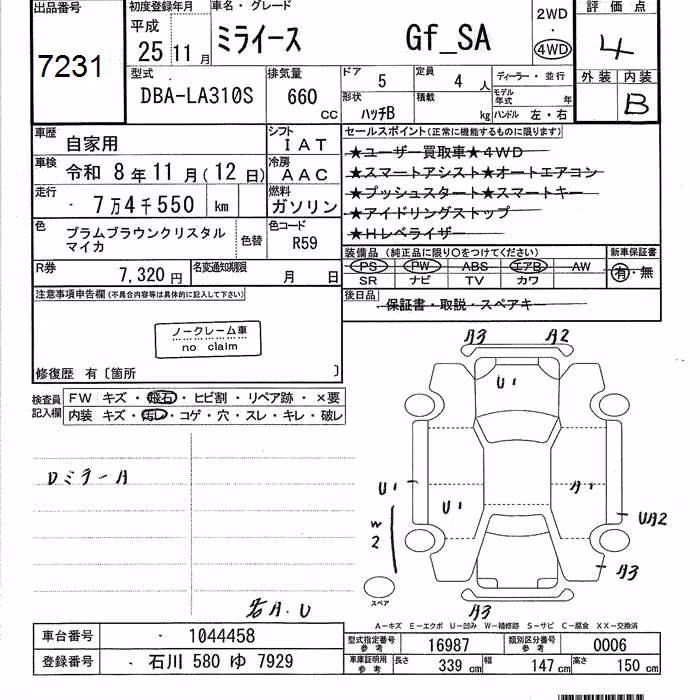 出品番号
7231
初度登録年月
平成
25 11月
車名・グレード
ミライース Gf_SA
2WD
・
4WD
評価点
4
外装 内装
B
型式
DBA-LA310S
排気量
660 CC
ドア 5
定員 4 人
ディーラー・並行
形状 ハッチB
積載 kg
モデル年式 年
ハンドル 左・右
車歴 自家用
シフト IAT
車検 令和 8年11月(12日)
冷房 AAC
走行 7万4千550 km
燃料 ガソリン
色 プラムブラウンクリスタル
マイカ
色替
色コード R59
R券 7,320円
名変通知期限 月 日
セールスポイント(正常に機能するものに限ります)
★ユーザー買取車★4WD
★スマートアシスト★オートエアコン
★プッシュスタート★スマートキー
★アイドリングストップ
★Hレベライザー
装備品(純正品に限り○をつけてください)
新車保証書
PS PW ABS エアB AW
SR ナビ TV カワ
有・無
後日品
保証書・取説・スペアキー
注意事項申告欄(不具合内容等は具体的に記入して下さい)
ノークレーム車
no claim
修復歴 有〔箇所 〕
検査員
記入欄
FW キズ・飛石・ヒビ割・リペア跡・×要
内装 キズ・汚レ・コゲ・穴・スレ・キレ・破レ
DミラーA
若A.U
A3 A2
U1
U1
U1
A1
UA2
W2
A3
A3
スペア
A-キズ E-エクボ U-凹み W-補修跡 S-サビ C-腐食 XX-交換済
車台番号 1044458
登録番号 石川 580 ゆ 7929
型式指定番号
参考
16987
類別区分番号
参考
0006
車庫証明用
参考
長さ 339 cm
幅 147 cm
高さ 150 cm